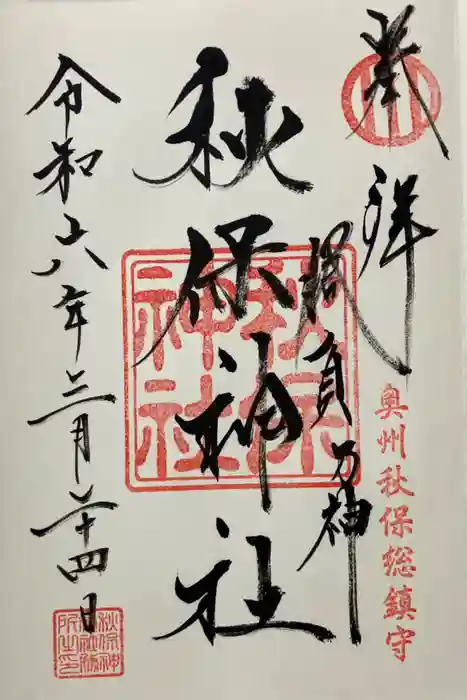 奉拝
奥州秋保総鎮守
勝負乃神
秋保神社
秋保神社
令和六年三月二十四日
秋保神社社務所之印